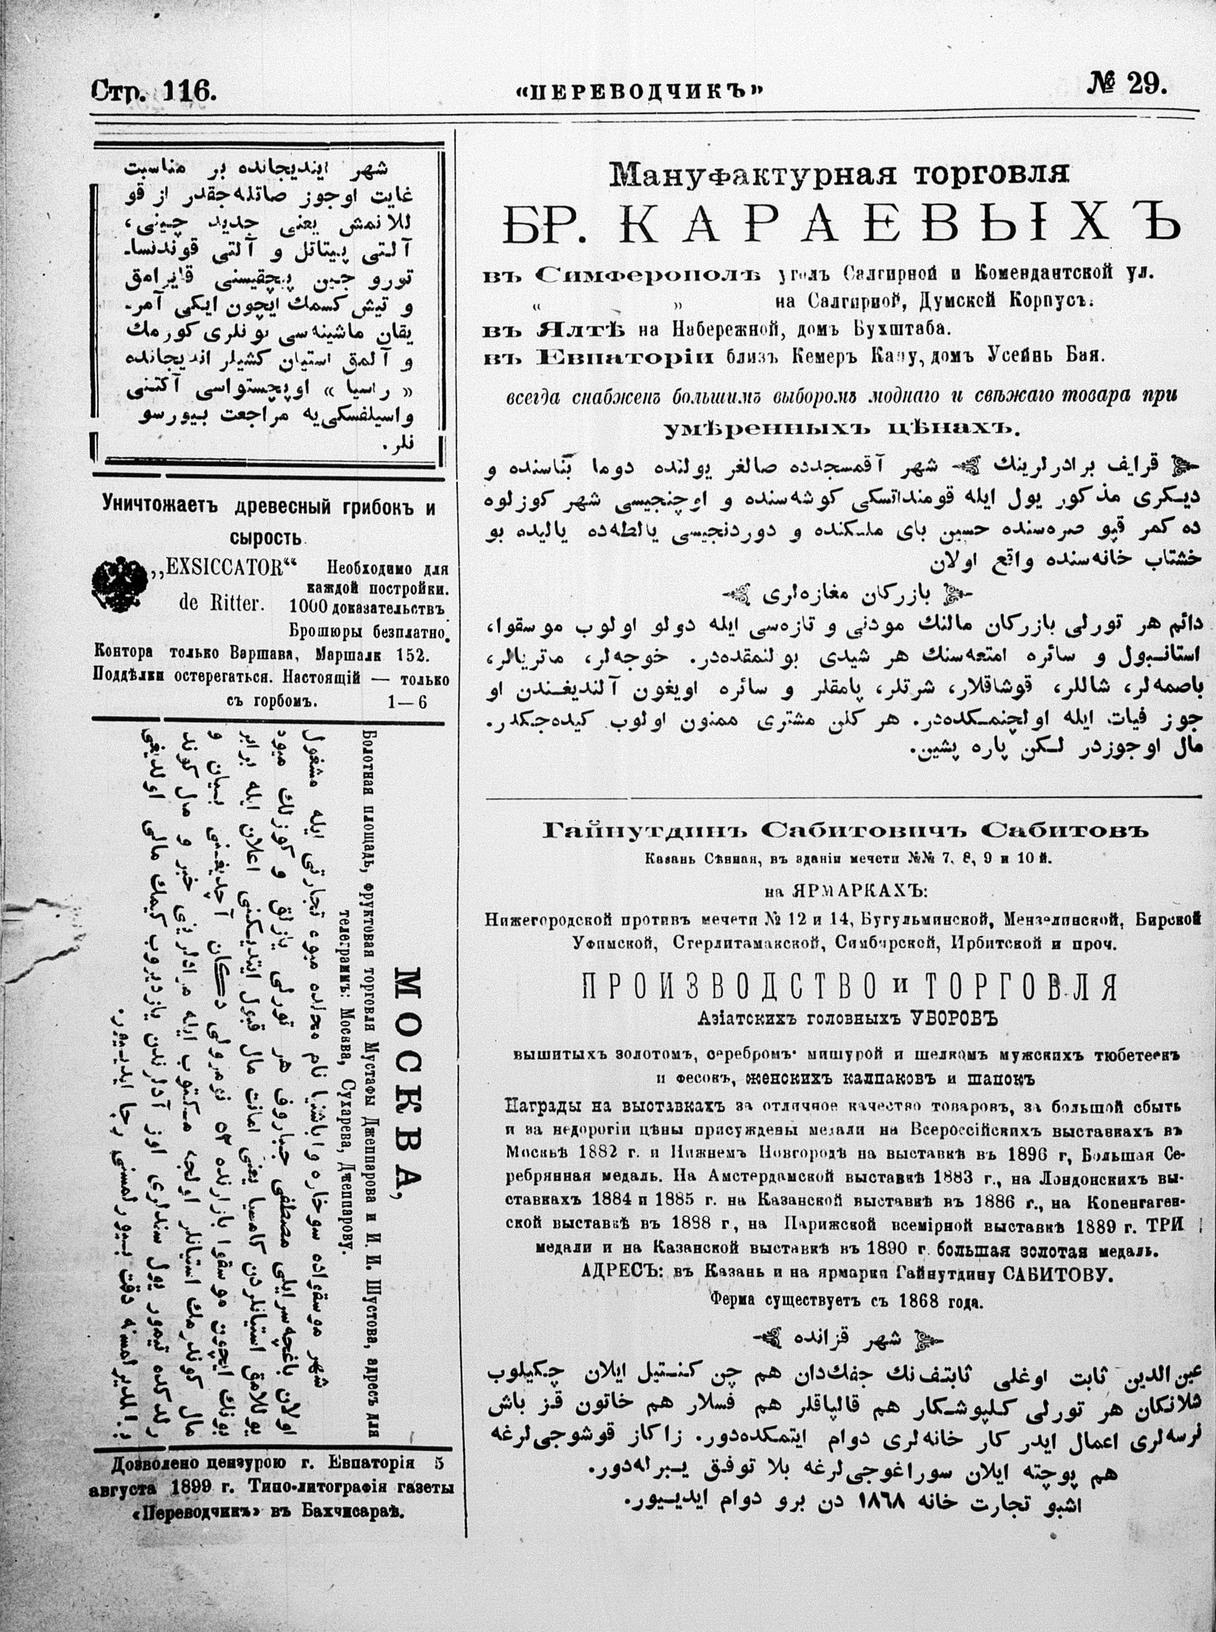 Стр. 116.
«ПЕРЕВОДЧИКЪ»
№ 29.
شهر اینديجانده بر مناسبت
غایت اوجوز صاتله‌جقدر از قو
للانمش یعنی جدید چینی،
آلتی پیتاتل و آلتی قوندنسا-
تورو جین پیچقیسنی قایرامق
و تیش کسمك ایچون ایکی آمر-
یقان ماشینه‌سی بونلری کورمك
و آلمق استیان کشیلر اندیجانده
« راسیا » اوبچستواسی آکتنی
واسیلفسکی‌یه مراجعت بیورسو
نلر.
Уничтожаетъ древесный грибокъ и
сырость
„EXSICCATOR“ Необходимо для
каждой постройки.
de Ritter. 1000 доказательствъ
Брошюры безплатно.
Контора только Варшава, Маршалк 152.
Поддѣлки остерегаться. Настоящій — только
съ горбомъ. 1—6
МОСКВА,
Болотная площадь, фруктовая торговля Мустафы Джеппарова и И. И. Шустова, адресъ для
телеграммъ: Москва, Сухарева, Джеппарову.
شهر موسقواده سوخاره و اباشنیا نام محلده میوه تجارتی ایله مشغول
اولان باغچه‌سرایلی مصطفی جباروف هر تورلی یازلق و کوزلك میوه
یوللامق استیانلردن کامسیا یعنی امانت مال قبول ایتدیکنی اعلان ایله برابر
بونك ایچون موسقوا بازارنده ٥٢ نومرولی دکان آچدیغنی بیان و
مال کوندرمك استیانلر اولجه مکتوب ایله مرادلرینی خبر و مال کوند
رلدکده تیمور یول سندلری اوز آدلرندن یازدیروب کیمك مالی اولدیغی
بلدیرلمسنه دقت بیورلمسنی رجا ایدییور.
Дозволено цензурою г. Евпаторія 5
августа 1899 г. Типо-литографія газеты
«Переводчикъ» въ Бахчисараѣ.
Мануфактурная торговля
БР. КАРАЕВЫХЪ
въ Симферополѣ уголъ Салгирной и Комендантской ул.
“ ” на Салгирной, Думской Корпусъ.
въ Ялтѣ на Набережной, домъ Бухштаба.
въ Евпаторіи близъ Кемеръ Капу, домъ Усейнь Бая.
всегда снабженъ большимъ выборомъ моднаго и свѣжаго товара при
умѣренныхъ цѣнахъ.
قرايف برادرلرینك شهر آقمسجدده صالغر یولنده دوما بناسنده و
دیکری مذکور یول ایله قومنداتسکی کوشه‌سنده و اوچنجیسی شهر کوزلوه
ده کمر قپو صره‌سنده حسین بای ملکنده و دوردنجیسی یالطه‌ده یالیده بو
خشتاب خانه‌سنده واقع اولان
بازرکان مغازه‌لری
دائم هر تورلی بازرکان مالنك مودنی و تازه‌سی ایله دولو اولوب موسقوا،
استانبول و سائره امتعه‌سنك هر شیدی بولنمقده‌در. خوجه‌لر، ماتریالر،
باصمه‌لر، شاللر، قوشاقلار، شرتلر، پامقلر و سائره اویغون آلندیغندن او
جوز فیات ایله اولچنمکده‌در. هر کلن مشتری ممنون اولوب کیده‌جیکدر.
مال اوجوزدر لکن پاره پشین.
Гайнутдинъ Сабитовичъ Сабитовъ
Казань Сѣнная, въ зданіи мечети №№ 7, 8, 9 и 10 й.
на ЯРМАРКАХЪ:
Нижегородской противъ мечети № 12 и 14, Бугульминской, Мензелинской, Бирской
Уфимской, Стерлитамакской, Симбирской, Ирбитской и проч.
ПРОИЗВОДСТВО и ТОРГОВЛЯ
Азіатскихъ головныхъ УБОРОВЪ
вышитыхъ золотомъ, серебромъ мишурой и шелкомъ мужскихъ тюбетеекъ
и фесокъ, женскихъ калпаковъ и шапокъ
Награды на выставкахъ за отличное качество товаровъ, за большой сбытъ
и за недорогіи цѣны присуждены медали на Всероссійскихъ выставкахъ въ
Москвѣ 1882 г. и Нижнемъ Новгородѣ на выставкѣ въ 1896 г, Большая Се-
ребрянная медаль. На Амстердамской выставкѣ 1883 г., на Лондонскихъ вы-
ставкахъ 1884 и 1885 г. на Казанской выставкѣ въ 1886 г., на Копенгаген-
ской выставкѣ въ 1888 г, на Парижской всемірной выставкѣ 1889 г. ТРИ
медали и на Казанской выставкѣ въ 1890 г. большая золотая медаль.
АДРЕСЪ: въ Казань и на ярмарки Гайнутдину САБИТОВУ.
Фирма существуетъ съ 1868 года.
شهر قزانده
عین‌الدین ثابت اوغلی ثابتفنك جفك‌دان هم چن کنتیل ایلان چکیلوب
شلانکان هر تورلی کلپوشکار هم قالپاقلر هم فسلار هم خاتون قز باش
لرسه‌لری اعمال ایدر کار خانه‌لری دوام ایتمکده‌دور. زاکاز قوشوجی‌لرغه
هم پوچته ایلان سوراغوجی‌لرغه بلا توفق یبرله‌دور.
اشبو تجارت خانه ۱۸٦۸ دن برو دوام ایدییور.